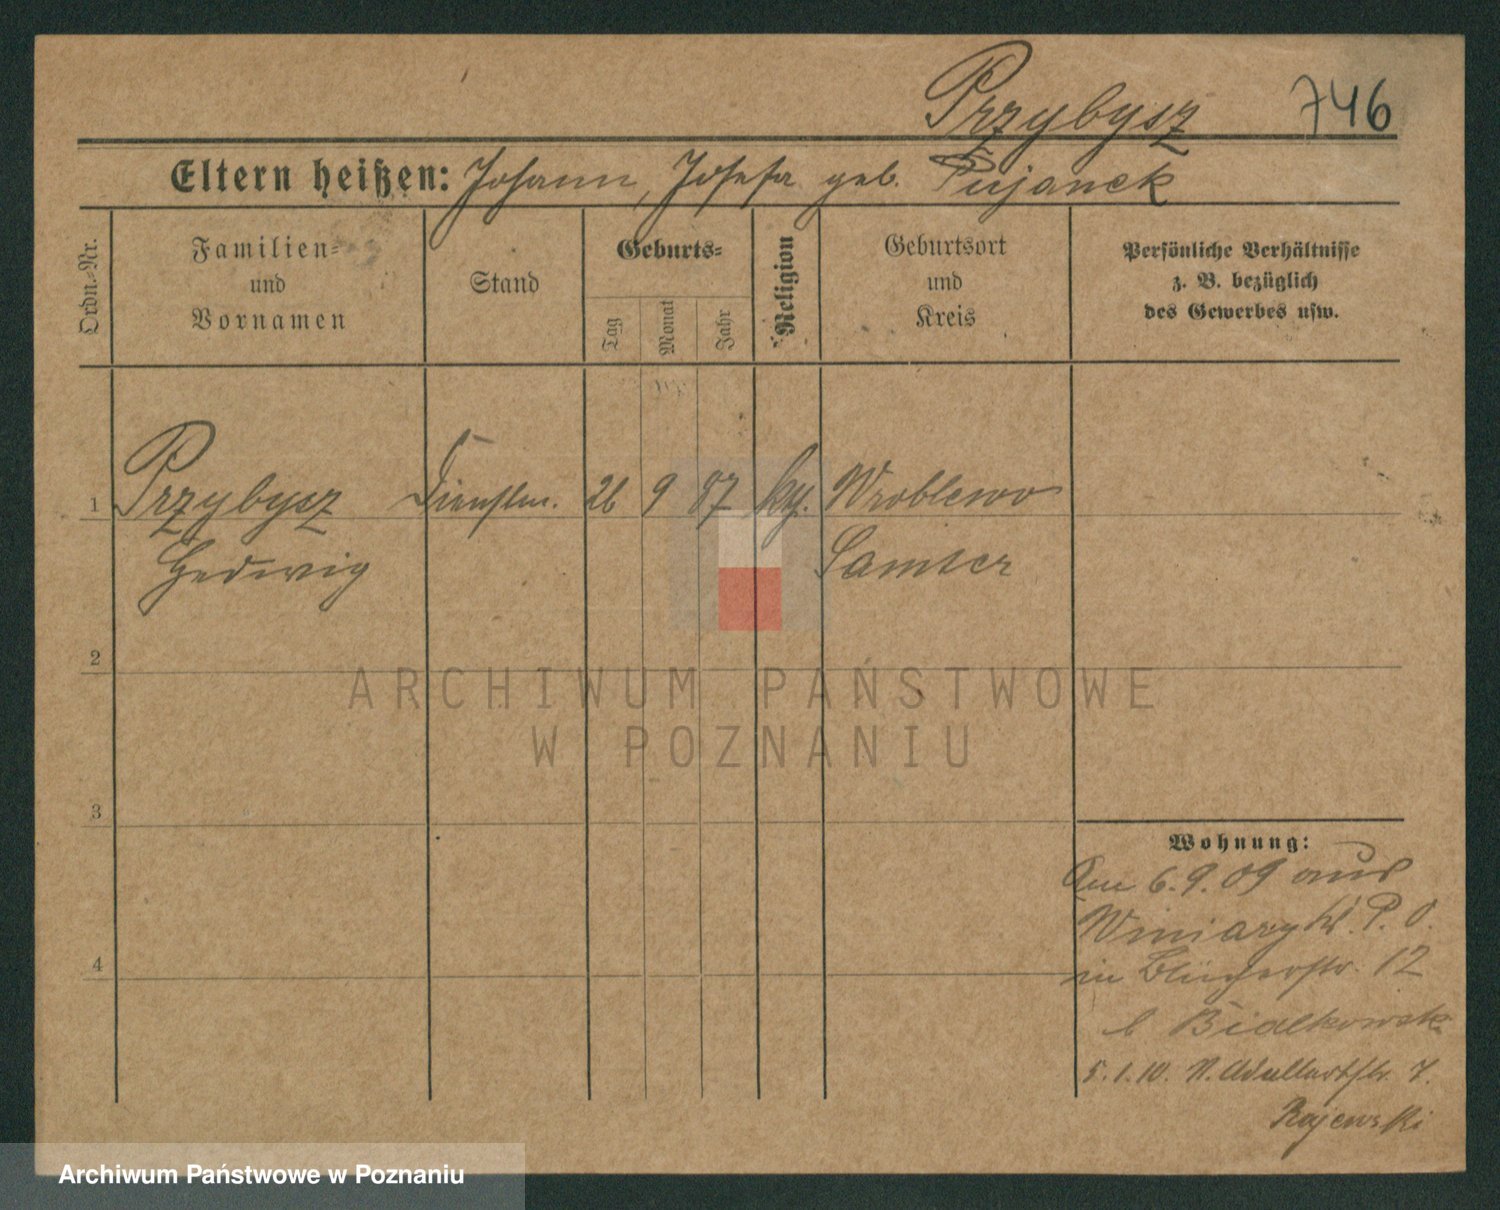 Przybysz 746
Eltern heißen: Johann, Josefa geb. Pujanek
Ordn.-Nr.
Familien-
und
Vornamen
Stand
Geburts-
Tag
Monat
Jahr
Religion
Geburtsort
und
Kreis
Persönliche Verhältnisse
z. B. bezüglich
des Gewerbes usw.
1 Przybysz Dienstm. 26 9 87 kth. Wroblewo
Hedwig Samter
2
3
4
Wohnung:
Am 6.9.09 aus
Winiary P. O.
in 12
b Bialkowski
5.1.10. 7.
Rajewski
ARCHIWUM PAŃSTWOWE
W POZNANIU
Archiwum Państwowe w Poznaniu